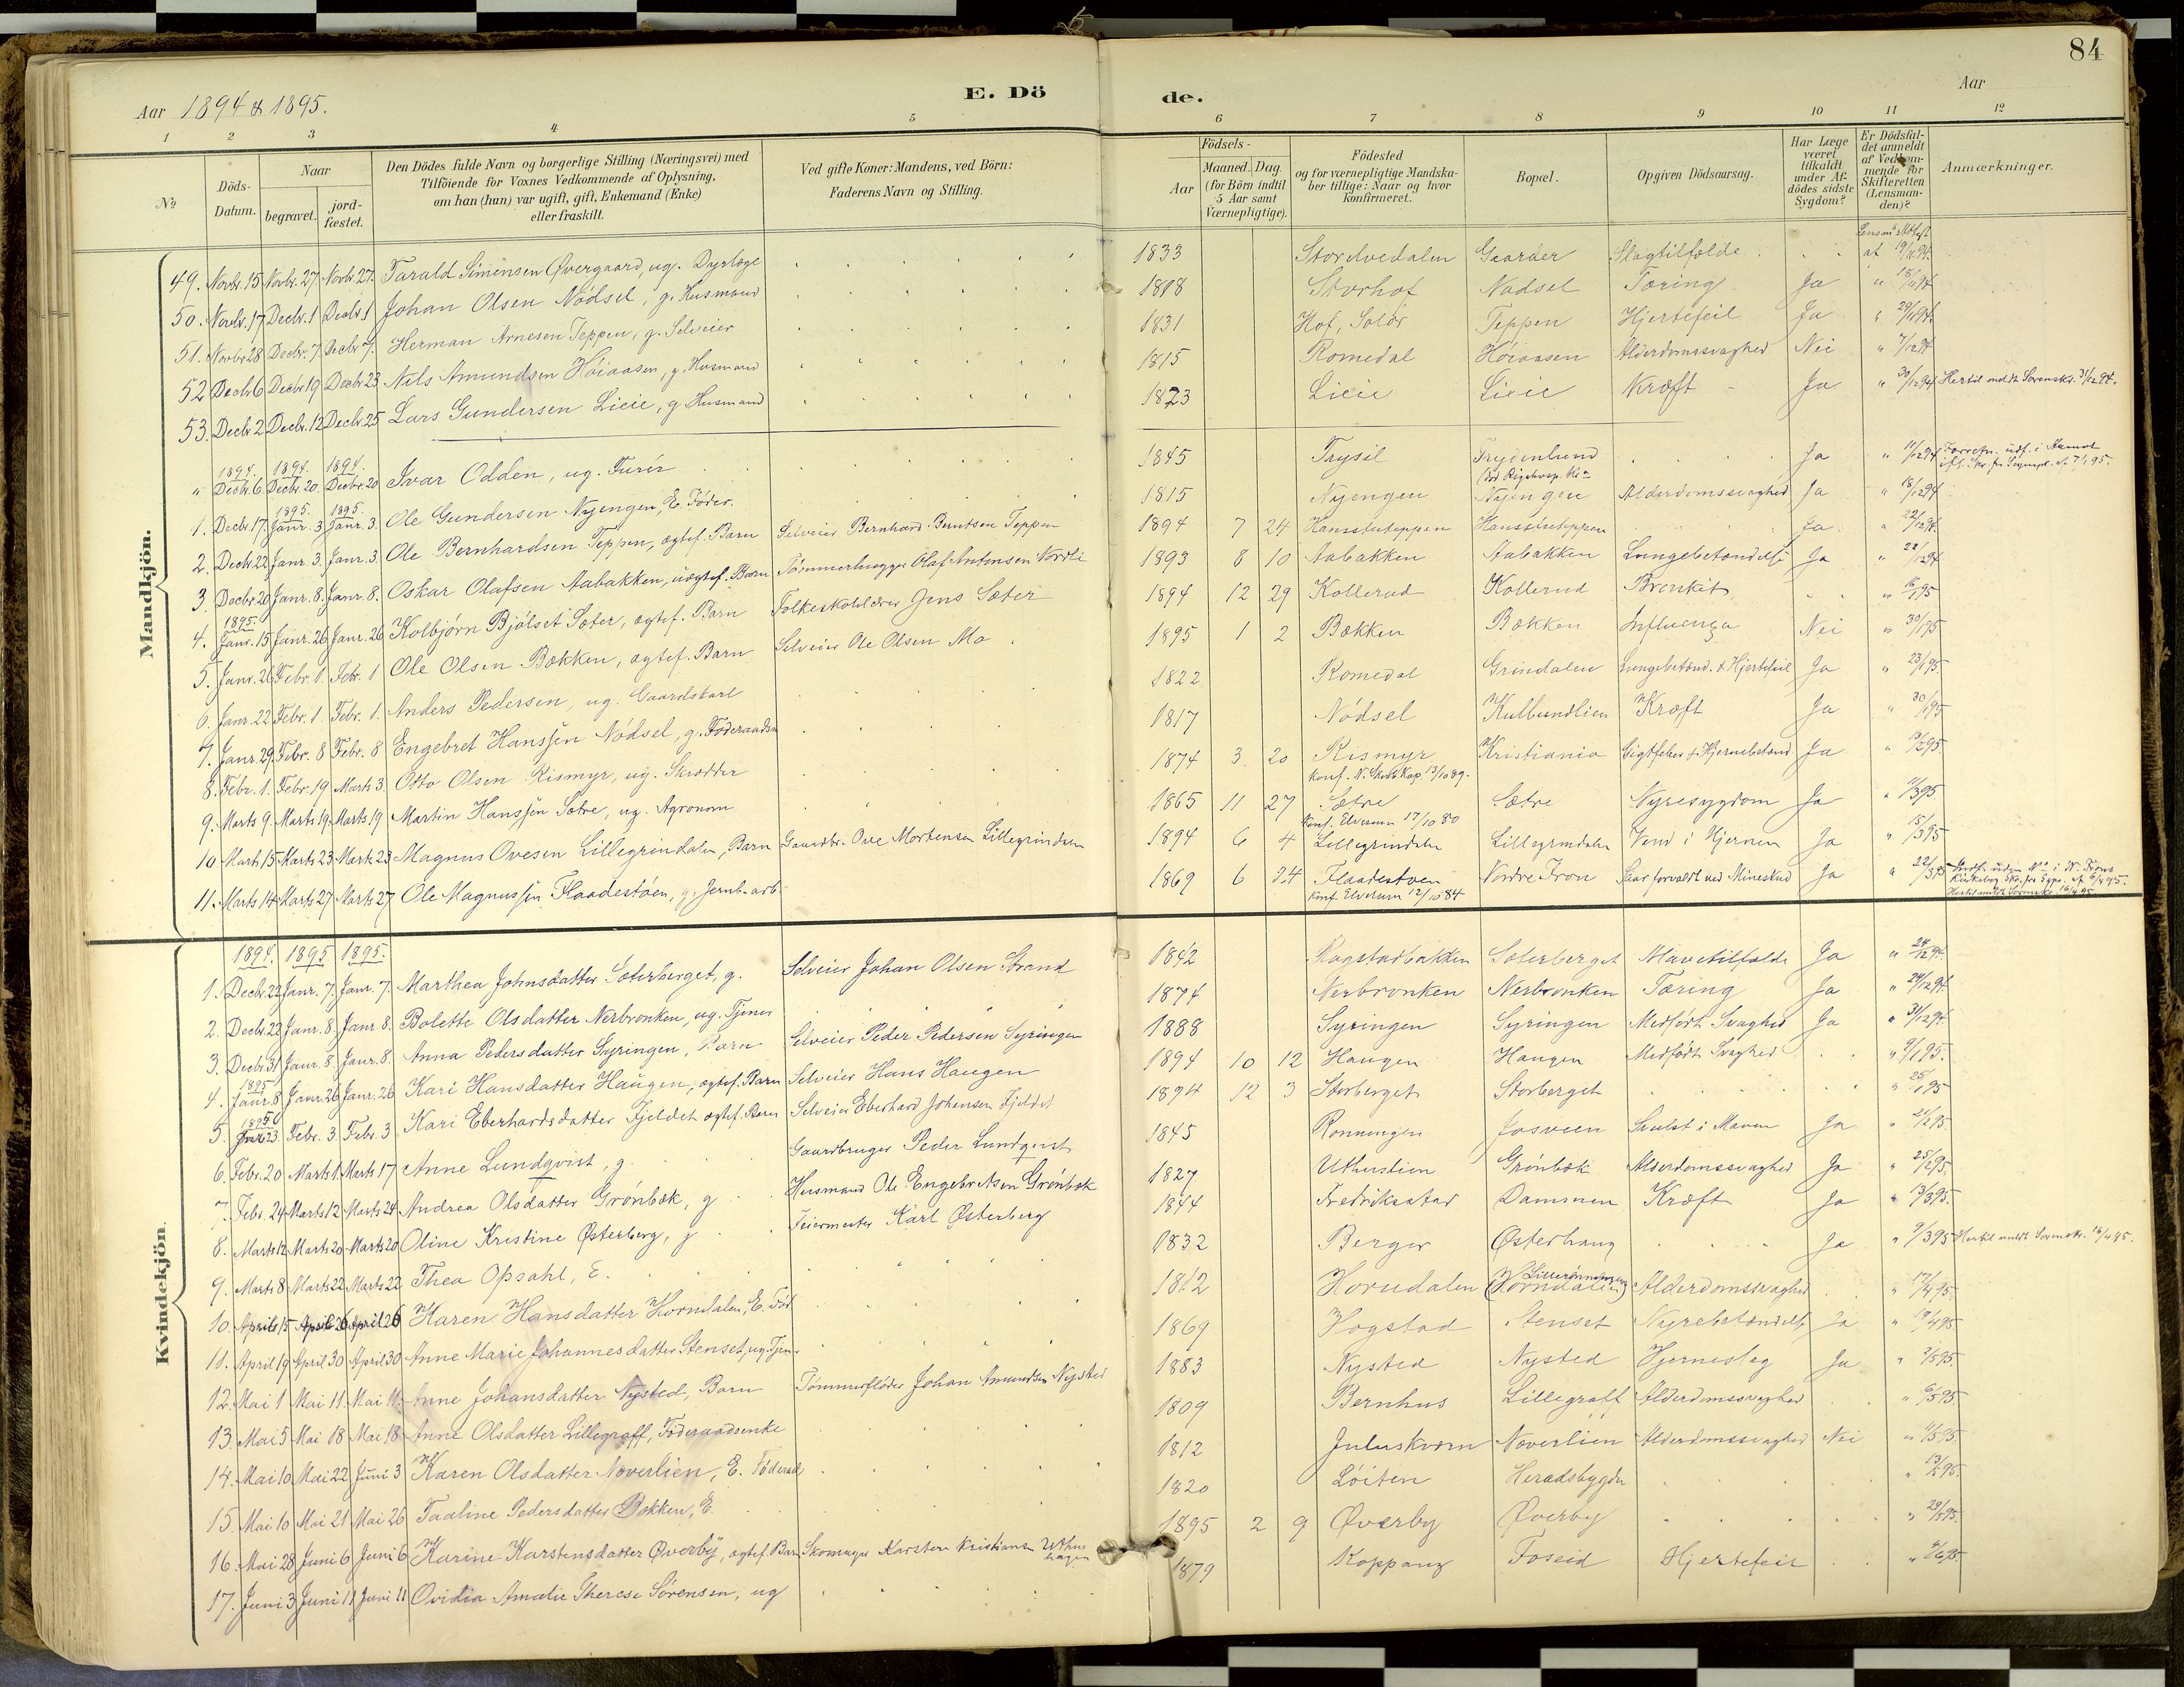 84
Aar 1894 & 1895.
E. Dö de.
Aar
1 2 3 4 5 6 7 8 9 10 11 12
No
Döds-Datum.
Naar
begravet.
jord-fæstet.
Den Dödes fulde Navn og borgerlige Stilling (Næringsvei) med
Tilföiende for Voxnes Vedkommende af Oplysning,
om han (hun) var ugift, gift, Enkemand (Enke)
eller fraskilt.
Ved gifte Koner: Mandens, ved Börn:
Faderens Navn og Stilling.
Födsels-
Aar
Maaned. Dag
(for Börn indtil
5 Aar samt
Værnepligtige).
Födested
og for værnepligtige Mandska-
ber tillige: Naar og hvor
konfirmeret.
Bopæl.
Opgiven Dödsaarsag.
Har Læge
været
tilkaldt
under Af-
dödes sidste
Sygdom?
Er Dödsfal-
det anmeldt
af Vedkom-
mende for
Skifteretten
(Lensman-
den)?
Anmærkninger.
Mandkjön.
49. Novbr. 15 Novbr. 27 Novbr. 27. Tarald Simensen Øvergaard, ug. Dyrlæge 1833 Storelvedalen Gaarder Slagtilfælde at 19/11 94.
50. Novbr. 17 Decbr. 1 Decbr. 1 Johan Olsen Nødsel, g. Husmand 1818 Storhof Nødsel Tæring Ja " 18/11 94
51. Novbr. 28 Decbr. 7. Decbr. 7. Herman Arnesen Teppen, g. Selveier 1831 Hof, Solør Teppen Hjertefeil Ja " 29/11 94.
52 Decbr. 6 Decbr. 19 Decbr. 23 Nils Amundsen Høiaasen, g. Husmand 1815 Romedal Høiaasen Alderdomssvaghed Nei " 7/12 94
53. Decbr. 2 Decbr. 12 Decbr. 25 Lars Gundersen Lieie, g. Husmand 1823 Lieie Lieie Kræft Ja " 30/12 94
1894. 1894. 1894.
" Decbr. 6 Decbr. 20. Decbr. 20 Ivar Odden, ug. Furér 1845 Trysil Ja " 11/12 94
1895. 1895.
1. Decbr. 17. Janr. 3 Janr. 3. Ole Gundersen Nyengen, E. Føder. 1815 Nyengen Nyengen Alderdomssvaghed Ja " 18/12 94
2. Decbr. 22 Janr. 3. Janr. 3. Ole Bernhardsen Teppen, ægtef. Barn Selveier Bernhard Berntsen Teppen 1894 7 24 Hansstuteppen Hansstuteppen Ja " 22/12 94.
3. Decbr. 20 Janr. 8. Janr. 8. Oskar Olafsen Aabakken, uægtef. Barn Tømmerhugger Olaf Antonsen Nordli 1893 8 10 Aabakken Aabakken Lungebetændelse Ja " 22/12 94
1895.
4. Janr. 15 Janr. 26 Janr. 26 Kolbjørn Bjølset Sæter, ægtef. Barn Folkeskolelærer Jens Sæter 1894 12 29 Kollerud Kollerud Bronkit
5. Janr. 26 Febr. 1. Febr. 1 Ole Olsen Bækken, ægtef. Barn Selveier Ole Olsen Mo 1895 1 2 Bækken Bækken Influenza Nei " 30/1 95
6. Janr. 22 Febr. 1. Febr. 1. Anders Pedersen, ug. Gaardskarl 1822 Romedal Grindalen Lungebetænd. & Hjertefeil Ja " 23/1 95.
7. Janr. 29. Febr. 8 Febr. 8 Engebret Hanssen Nødsel, g. 1817 Nødsel Kulbundlien Kræft Ja " 30/1 95
8. Febr. 1. Febr. 19 Marts 3. Otto Olsen Rismyr, ug. Skrædder 1874 3 20 Rismyr Kristiania Gigtfeber & Hjernebetænd. Ja
9. Marts 9. Marts 19. Marts 19 Martin Hanssen Sætre, ug. Agronom 1865 11 27 Sætre Konf. Elverum 17/10 80 Sætre Nyresygdom Ja
10 Marts 15 Marts 23 Marts 23 Magnus Ovesen Lillegrindalen, Barn Gaardbr. Ove Mortensen Lillegrindalen 1894 6 4 Lillegrindalen Lillegrindalen Vand i Hjernen Ja " 15/3 95
11. Marts 14 Marts 27 Marts 27 Ole Magnussen Flaadestøen, g. Jernb.-arb. 1869 6 24 Flaadestøen Konf. Elverum 12/10 84 Nordre Fron Saar forvoldt ved Mineskud Ja " 22/3 95
Kvindekjön.
1894. 1895 1895.
1. Decbr. 22 Janr. 7. Janr. 7. Marthea Johnsdatter Sæterberget, g. Selveier Johan Olsen Strand 1842 Ragstadbakken Sæterberget Mavetilfælde Ja " 24/12 94.
2. Decbr. 22 Janr. 8. Janr. 8. Bolette Olsdatter Nerbronken, ug. Tjener 1874 Nerbronken Nerbronken Tæring Ja " 24/12 94
3. Decbr. 31 Janr. 8. Janr. 8. Anna Pedersdatter Syringen, Barn Selveier Peder Pedersen Syringen 1888 Syringen Syringen Medfødt Svaghed Ja " 31/12 94.
1895
4. Janr. 8 Janr. 26 Janr. 26 Kari Hansdatter Haugen, ægtef. Barn Selveier Hans Haugen 1894 10 12 Haugen Haugen Medfødt Svaghed " 9/1 95.
1895
5. Janr. 23. Febr. 3. Febr. 3 Kari Eberhardsdatter Fjeldet ægtef. Barn Selveier Eberhard Johansen Fjeldet 1894 12 3 Storberget Storberget " 25/1 95
6. Febr. 20 Marts 1. Marts 17 Anne Lundqvist, g. Gaardbruger Peder Lundqvist 1845 Rønningen Josveen Svulst i Maven Ja " 21/2 95.
7. Febr. 24 Marts 12 Marts 24 Andrea Olsdatter Grønbæk, g Husmand Ole Engebretsen Grønbæk 1827 Uthuslien Grønbæk Alderdomssvaghed Ja " 25/2 95.
8. Marts 12 Marts 20 Marts 20 Oline Kristine Østerberg, g Feiermester Karl Østerberg 1844 Fredriksstad Dammen Kræft Ja " 13/3 95.
9. Marts 8 Marts 22 Marts 22 Thea Opsahl, E. 1832 Berger Østerhaug Ja " 9/3 95
10. April 15 April 26 April 26 Karen Hansdatter Horndalen, E. Fød 1812 Horndalen (Horndalen) Alderdomssvaghed " 17/4 95.
11. April 19 April 30 April 30 Anne Marie Johannesdatter Stenset, ug. Tjen. 1869 Hogstad Stenset Nyrebetændelse Ja " 19/4 95.
12. Mai 1 Mai 11. Mai 11. Anne Johansdatter Nysted, Barn Tømmerfløder Johan Amundsen Nysted 1883 Nysted Nysted Hjerneslag Ja " 2/5 95.
13. Mai 5 Mai 18 Mai 18 Anne Olsdatter Lillegraff, Føderaadsenke 1809 Bernhus Lillegraff Alderdomssvaghed " 6/5 95.
14. Mai 10 Mai 22 Juni 3 Karen Olsdatter Noverlien, E. Føderaad 1812 Juluskværn Noverlien Alderdomssvaghed Nei
15. Mai 10 Mai 21 Mai 26 Taaline Pedersdatter Bækken, E. 1820 Løiten Heradsbygden " 13/5 95.
16. Mai 28 Juni 6 Juni 6 Karine Karstensdatter Øverby, ægtef. Barn Skomager Karsten Kristiansen Uthus hagen 1895 2 9 Øverby Øverby " 29/5 95.
17. Juni 3 Juni 11 Juni 11 Ovidia Amalie Therese Sørensen, ug 1879 Koppang Foseid Hjertefeil